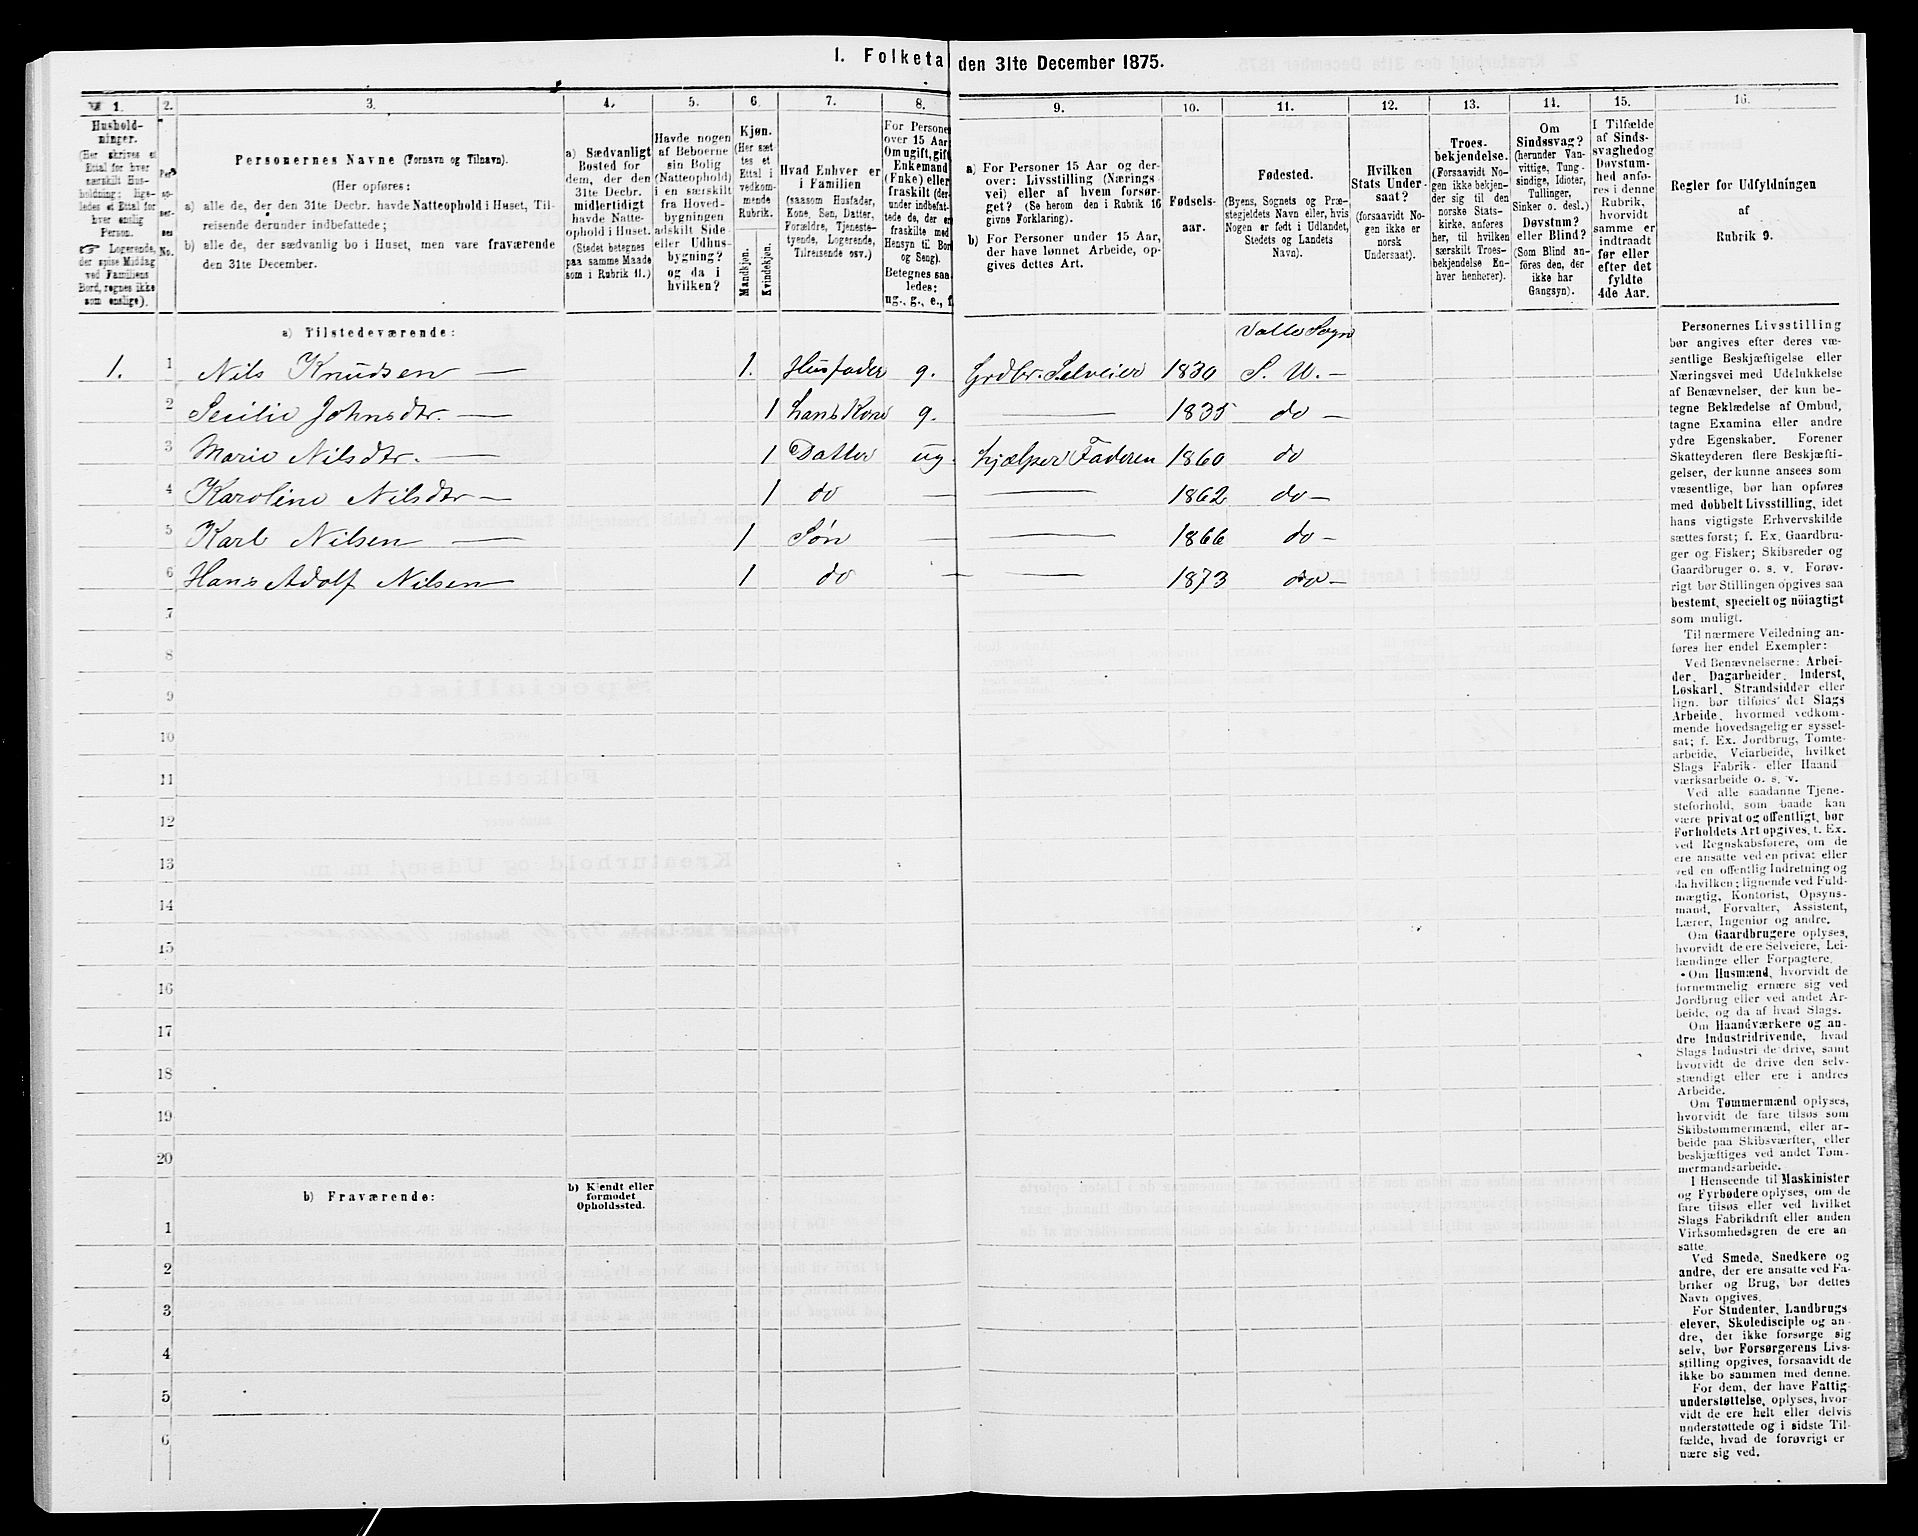 1. Folketa den 31te December 1875.
1. 2. 3. 4. 5. 6. 7. 8. 9. 10. 11. 12. 13. 14. 15. 16.
Hushold-
ninger.
(Her skrives et
Ettal for hver
særskilt Hus-
holdning; lige-
ledes et Ettal for
hver enslig
Person.
☞ Logerende,
der spise Middag
ved Familiens
Bord, regnes ikke
som enslige).
Per-
so-
ner-
nes
No.
Personernes Navne (Fornavn og Tilnavn).
(Her opføres:
a) alle de, der den 31te Decbr. havde Natteophold i Huset, Til-
reisende derunder indbefattede;
b) alle de, der sædvanlig bo i Huset, men vare fraværende
den 31te December.
a) Sædvanligt
Bosted for
dem, der den
31te Decbr.
midlertidigt
havde Natte-
ophold i Huset.
(Stedet betegnes
paa samme Maade
som i Rubrik 11.)
Havde nogen
af Beboerne
sin Bolig
(Natteophold)
i en særskilt
fra Hoved-
bygningen
adskilt Side-
eller Udhus-
bygning?
og da i
hvilken?
Kjøn.
(Her sæt-
tes et
Ettal i
vedkom-
mende
Rubrik.
Mandkjøn.
Kvindekjøn.
Hvad Enhver er
i Familien
(saasom Husfader,
Kone, Søn, Datter,
Forældre, Tjeneste-
tyende, Logerende,
Tilreisende osv.)
For Persone
over 15 Aar
Om ugift, gift
Enkemand
(Enke) eller
fraskilt (der-
under indbefat-
tede de, der er
fraskilte med
Hensyn til Bor
og Seng).
Betegnes saa
ledes:
ug., g., e., f
a) For Personer 15 Aar og der-
over: Livsstilling (Nærings-
vei) eller af hvem forsør-
get? (Se herom den i Rubrik 16
givne Forklaring).
b) For Personer under 15 Aar,
der have lønnet Arbeide, op-
gives dettes Art.
Fødsels-
aar.
Fødested.
(Byens, Sognets og Præ-
stegjeldets Navn eller, hvis
Nogen er født i Udlandet,
Stedets og Landets
Navn).
Hvilken
Stats Under-
saat?
(forsaavidt No-
gen ikke er
norsk
Undersaat).
Troes-
bekjendelse.
(Forsaavidt No-
gen ikke bekjen-
der sig til den
norske Stats-
kirke, anføres
her, til hvilken
særskilt Troes-
bekjendelse En-
hver henhører).
Om
Sindssvag?
(herunder Van-
vittige, Tung-
sindige, Idioter,
Tullinger,
Sinker o. desl.)
Døvstum?
eller Blind?
(Som Blind an-
føres den, der
ikke har
Gangsyn).
I Tilfælde
af Sinds-
svaghed og
Døvstum-
hed anfø-
res i denne
Rubrik,
hvorvidt
samme er
indtraadt
før eller
efter det
fyldte
4de Aar.
Regler for Udfyldningen
af
Rubrik 9.
a) Tilstedeværende:
Valle Sogn
1. 1 Nils Knudsen — 1. Husfader g. Grdbr. Selveier 1830 S. U. —
2 Secilie Johnsdtr. — 1 hans Kone g. — 1835 do —
3 Marie Nilsdtr. — 1 Datter ug. hjælper Faderen 1860 do
4 Karoline Nilsdtr — 1 do — — 1862 do —
5 Karl Nilsen — 1 Søn — — 1866 do —
6 Hans Adolf Nilsen 1 do — — 1873 do —
7
8
9
10
11
12
13
14
15
16
17
18
19
20
b) Fraværende:
b) Kjendt eller
formodet
Opholdssted.
1
2
3
4
5
6
Personernes Livsstilling
bør angives efter deres væ-
sentlige Beskjæftigelse eller
Næringsvei med Udelukkelse
af Benævnelser, der kun be-
tegne Beklædelse af Ombud,
tagne Examina eller andre
ydre Egenskaber. Forener
Skatteyderen flere Beskjæfti-
gelser, der kunne ansees som
væsentlige, bør han opføres
med dobbelt Livsstilling, idet
hans vigtigste Erhvervskilde
sættes først; f. Ex. Gaardbru-
ger og Fisker; Skibsreder og
Gaardbruger o. s. v. Forøv-
rigt bør Stillingen opgives saa
bestemt, specielt og nöiagtigt
som muligt.
Til nærmere Veiledning an-
føres her endel Exempler:
Ved Benævnelserne: Arbei-
der, Dagarbeider, Inderst,
Løskarl, Strandsidder eller
lign. bør tilføies det Slags
Arbeide, hvormed vedkom-
mende hovedsagelig er syssel-
sat; f. Ex. Jordbrug, Tomte-
arbeide, Veiarbeide, hvilket
Slags Fabrik- eller Haand
værksarbeide o. s. v.
Ved alle saadanne Tjene-
steforhold, som baade kan
være privat og offentligt, bør
Forholdets Art opgives, t. Ex.
ved Regnskabsførere, om de
ere ansatte ved en privat eller
ved en offentlig Indretning og
da hvilken; lignende ved Fuld-
mægtig, Kontorist, Opsyns-
mand, Forvalter, Assistent,
Lærer, Ingeniør og andre.
Om Gaardbrugere oplyses,
hvorvidt de ere Selveiere, Lei-
lændinge eller Forpagtere.
Om Husmænd, hvorvidt de
fornemmelig ernære sig ved
Jordbrug eller ved andet Ar-
beide, og da af hvad Slags.
Om Haandværkere og an-
dre Industridrivende, hvad
Slags Industri de drive, samt
hvorvidt de drive den selv-
stændigt eller ere i andres
Arbeide.
Om Tømmermænd oplyses,
hvorvidt de fare tilsøs som
Skibstømmermænd, eller ar-
beide paa Skibsværfter, eller
beskjæftiges ved andet Tøm-
mermandsarbeide.
I Henseende til Maskinister
og Fyrbødere oplyses, om de
fare tilsøs eller ved hvilket
Slags Fabrikdrift eller anden
Virksomhedsgren de ere an-
satte.
Ved Smede, Snedkere og
andre, der ere ansatte ved Fa-
briker og Brug, bør dettes
Navn opgives.
For Studenter, Landbrugs
elever, Skoledisciple og an-
dre, der ikke forsørge sig
selv, bør Forsørgerens Livs-
stilling opgives, forsaavidt de
ikke bo sammen med denne.
For dem, der have Fattig-
understøttelse, oplyses, hvor-
vidt de ere helt eller delvis
understøttede og i sidste Til-
fælde, hvad de forøvrigt er
nære sig ved.